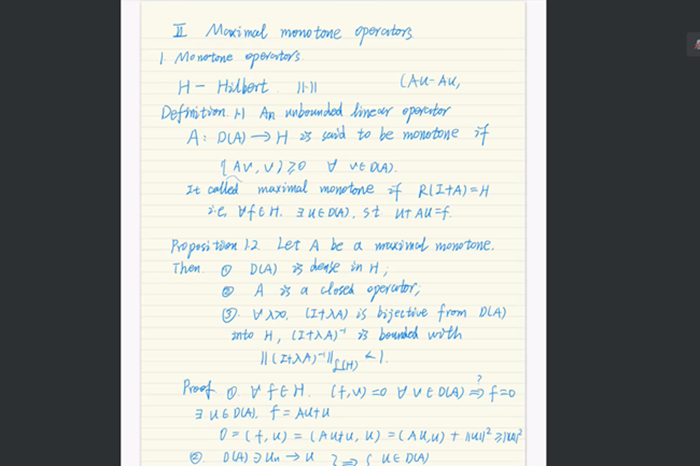 II Maximal monotone operators
1. Monotone operators
H – Hilbert. ||·|| (Au-Au,
Definition 1.1 An unbounded linear operator
A: D(A) → H is said to be monotone if
(Av, v) ≥0 ∀ v∈D(A).
It called maximal monotone if R(I+A)=H
i.e, ∀f∈H. ∃u∈D(A), s.t u+Au=f.
Proposition 1.2 Let A be a maximal monotone.
Then. ① D(A) is dense in H;
② A is a closed operator;
③. ∀λ>0, (I+λA) is bijective from D(A)
into H, (I+λA)⁻¹ is bounded with
||(I+λA)⁻¹||_L(H) ≤1.
Proof ①. ∀ f∈H. (f,v)=0 ∀ v∈D(A) ⇒? f=0
∃ u∈D(A), f = Au+u
0=(f,u) = (Au+u, u) = (Au,u) + ||u||² ≥||u||²
②. D(A)∋un → u } ⇒ { u∈D(A)